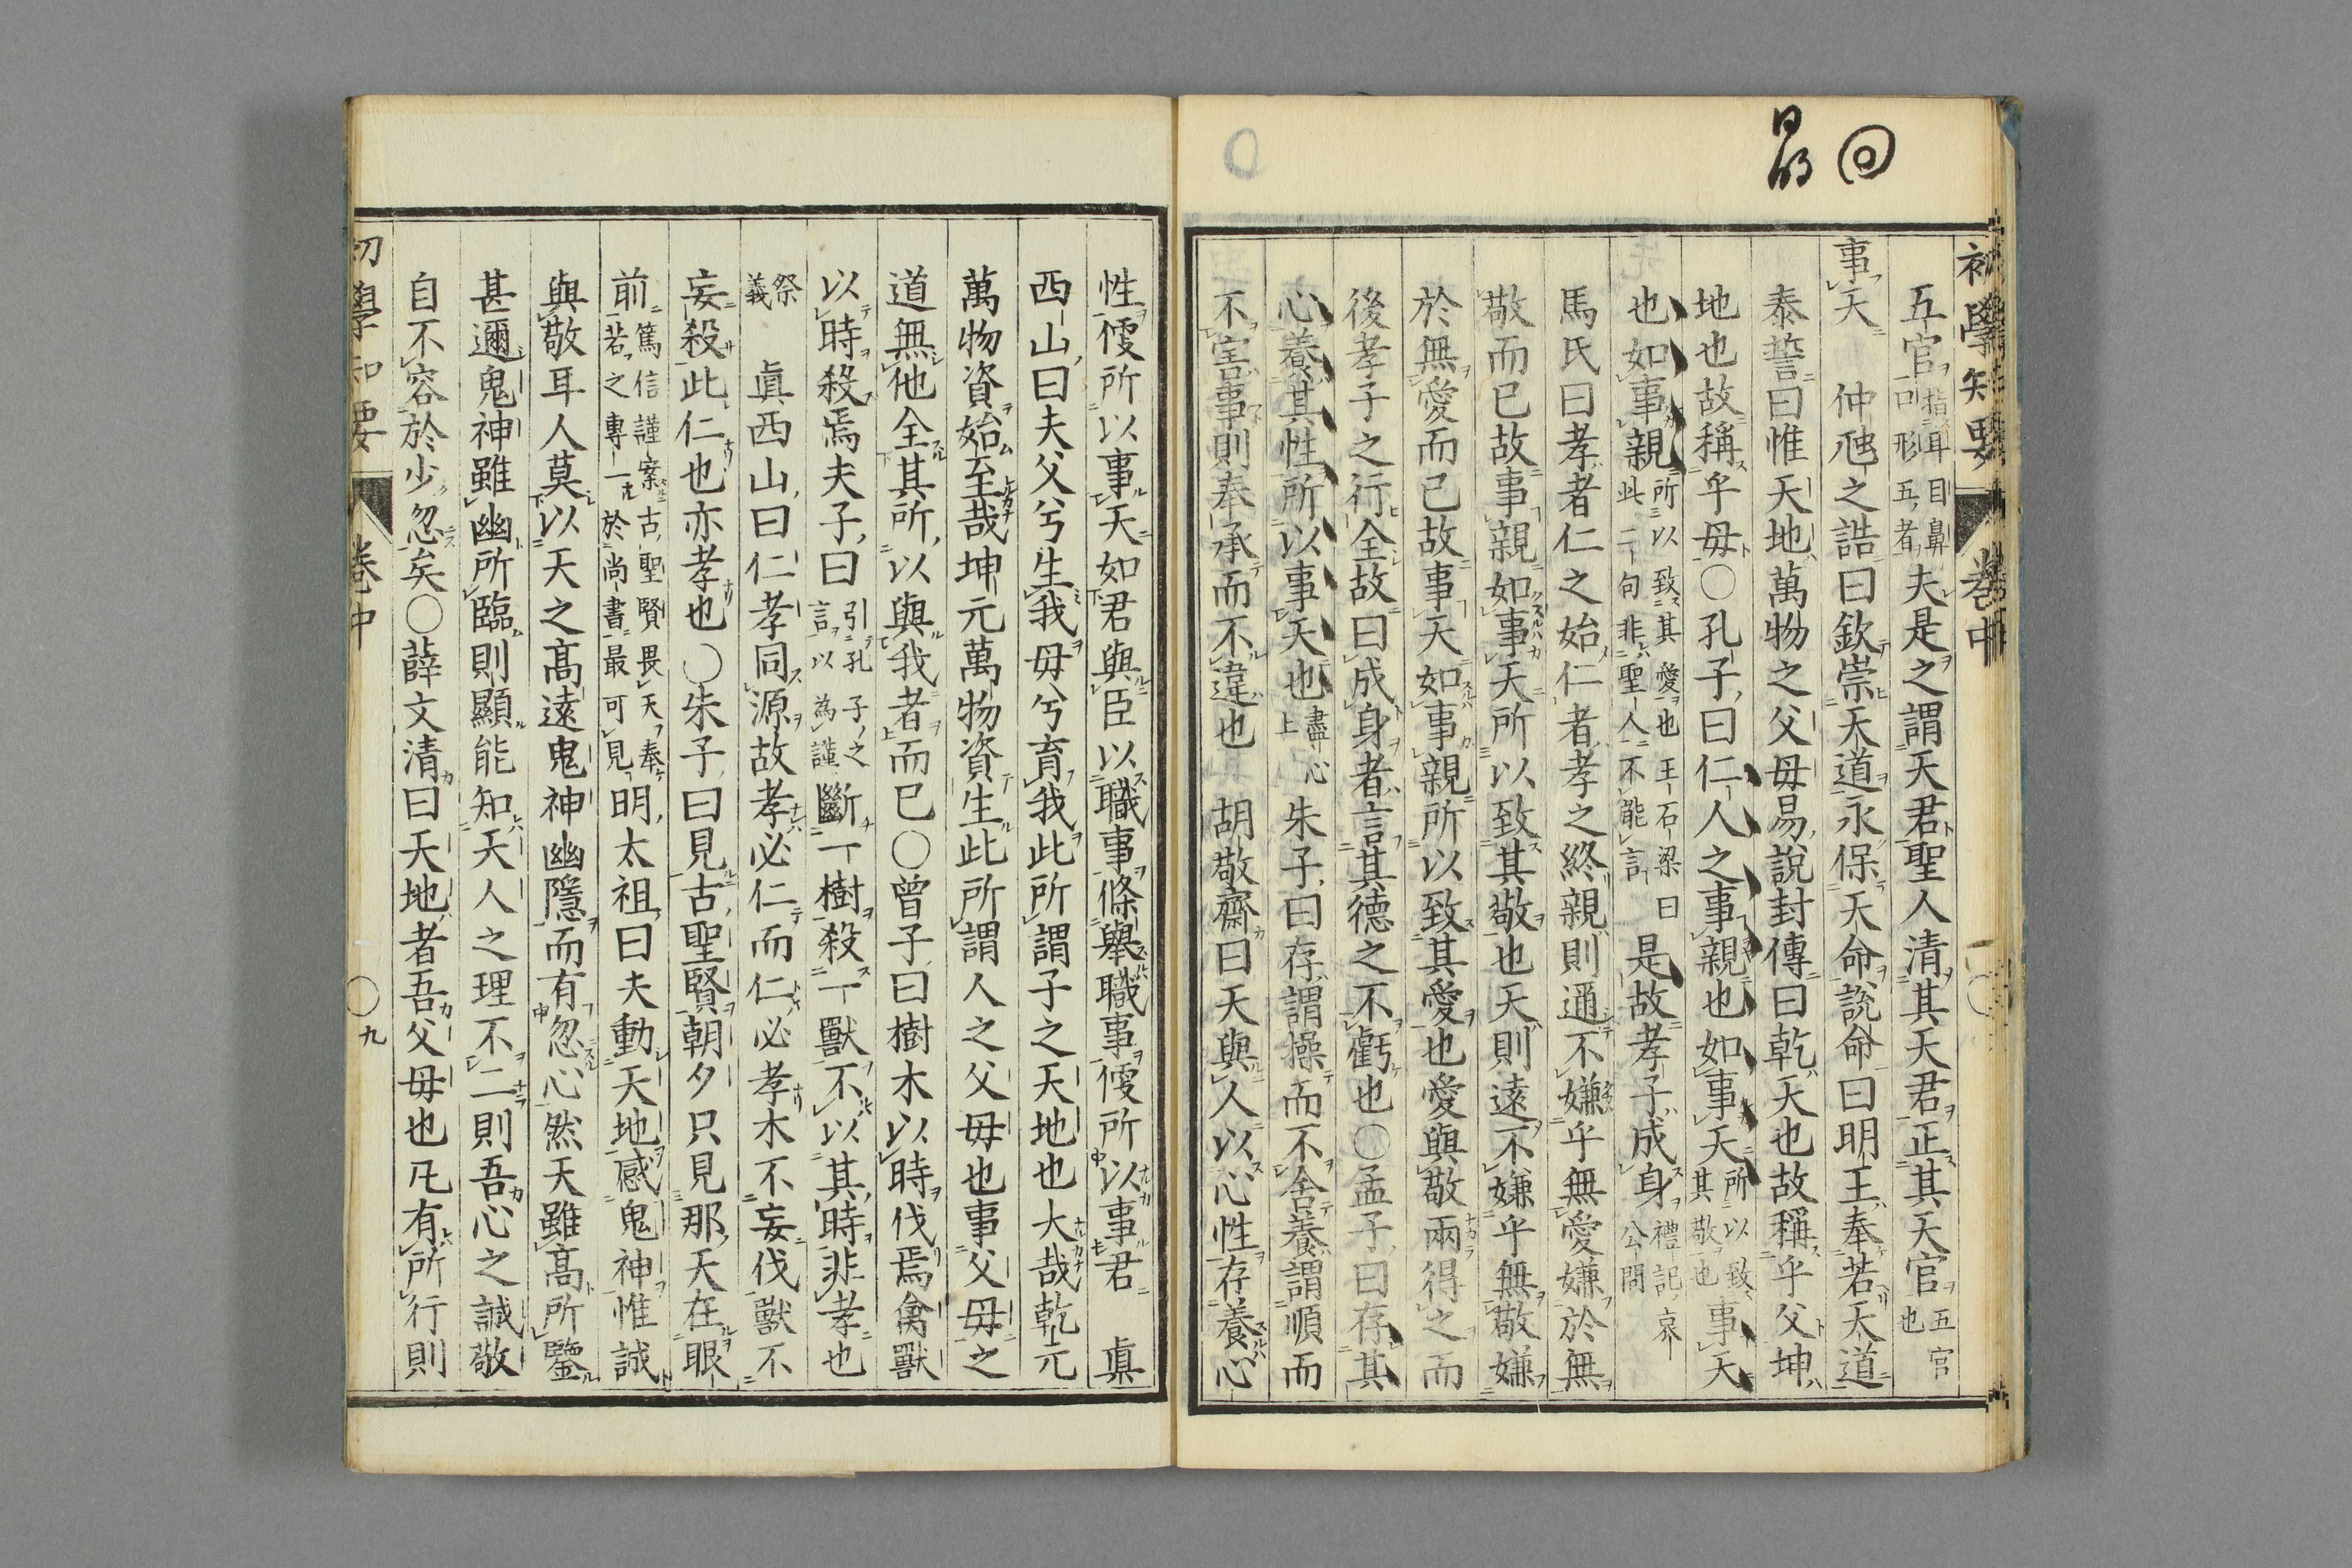 初學知要
卷中
五官指耳目鼻口形五者夫是之謂天君聖人清其天君正其天官五官也
事天　仲虺之誥曰欽崇天道永保天命說命曰明王奉若天道
泰誓曰惟天地萬物之父母易說卦傳曰乾天也故稱乎父坤
地也故稱乎母○孔子曰仁人之事親也如事天所以致其敬也事天
也如事親所以致其愛也王石梁曰此二句非聖人不能言是故孝子成身禮記哀公問
馬氏曰孝者仁之始仁者孝之終親則通不嫌乎無愛嫌於無
敬而已故事親如事天所以致其敬也天則遠不嫌乎無敬嫌
於無愛而已故事天如事親所以致其愛也愛與敬兩得之而
後孝子之行全故曰成身者言其德之不虧也○孟子曰存其
心養其性所以事天也盡心上　朱子曰存謂操而不舍養謂順而
不害事則奉承而不違也　胡敬齋曰天與人以心性存養心
性便所以事天如君與臣以職事條舉職事便所以事君　眞
西山曰夫父兮生我母兮育我此所謂子之天地也大哉乾元
萬物資始至哉坤元萬物資生此所謂人之父母也事父母之
道無他全其所以與我者而已○曾子曰樹木以時伐焉禽獸
以時殺焉夫子曰引孔子之言以為謹斷一樹殺一獸不以其時非孝也
祭義　眞西山曰仁孝同源故孝必仁而仁必孝木不妄伐獸不
妄殺此仁也亦孝也○朱子曰見古聖賢朝夕只見那天在眼
前篤信謹案古聖賢畏天奉若之專一尤於尚書最可見明太祖曰夫動天地感鬼神惟誠
與敬耳人莫以天之高遠鬼神幽隱而有忽心然天雖高所鑒
甚邇鬼神雖幽所臨則顯能知天人之理不二則吾心之誠敬
自不容於少忽矣○薛文清曰天地者吾父母也凡有所行則
初學知要
卷中
九